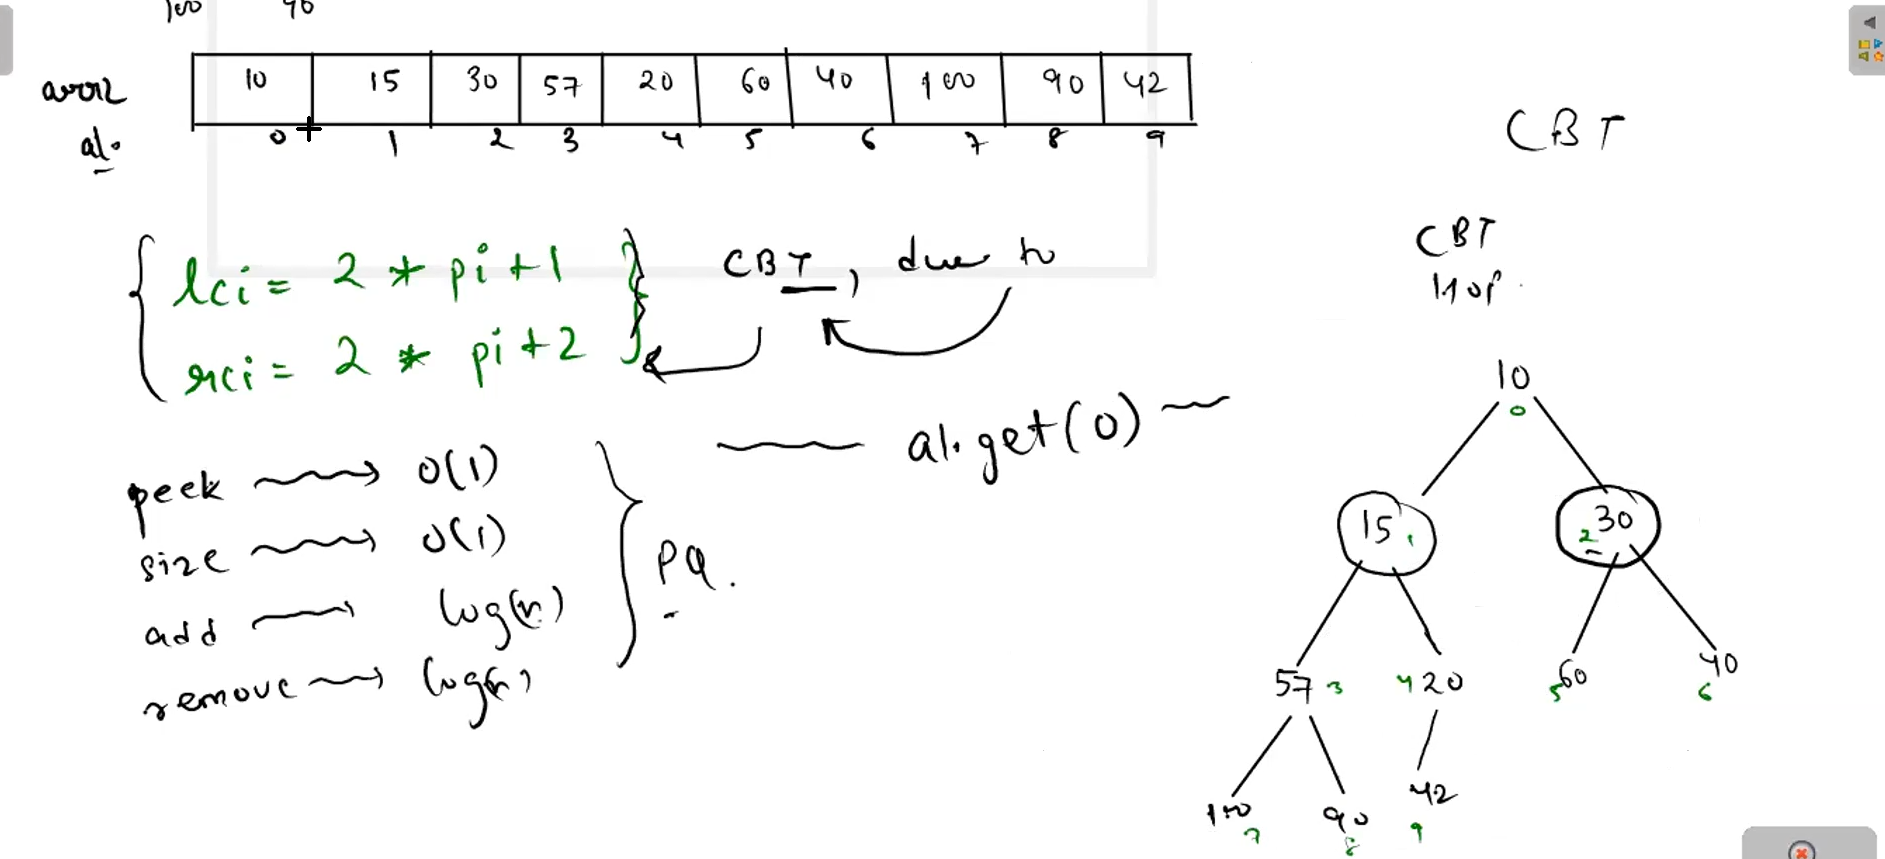 100 90
arr 10 15 30 57 20 60 40 100 90 42
al. 0 1 2 3 4 5 6 7 8 9
CBT
lci = 2 * pi + 1
rci = 2 * pi + 2
CBT, due to
CBT
HOP
al.get(0)
peek → O(1)
size → O(1)
add → log(n)
remove → log(n)
PQ.
10
0
15 1
2 30
57 3
4 20
5 60
40
6
100
7
90
8
42
9